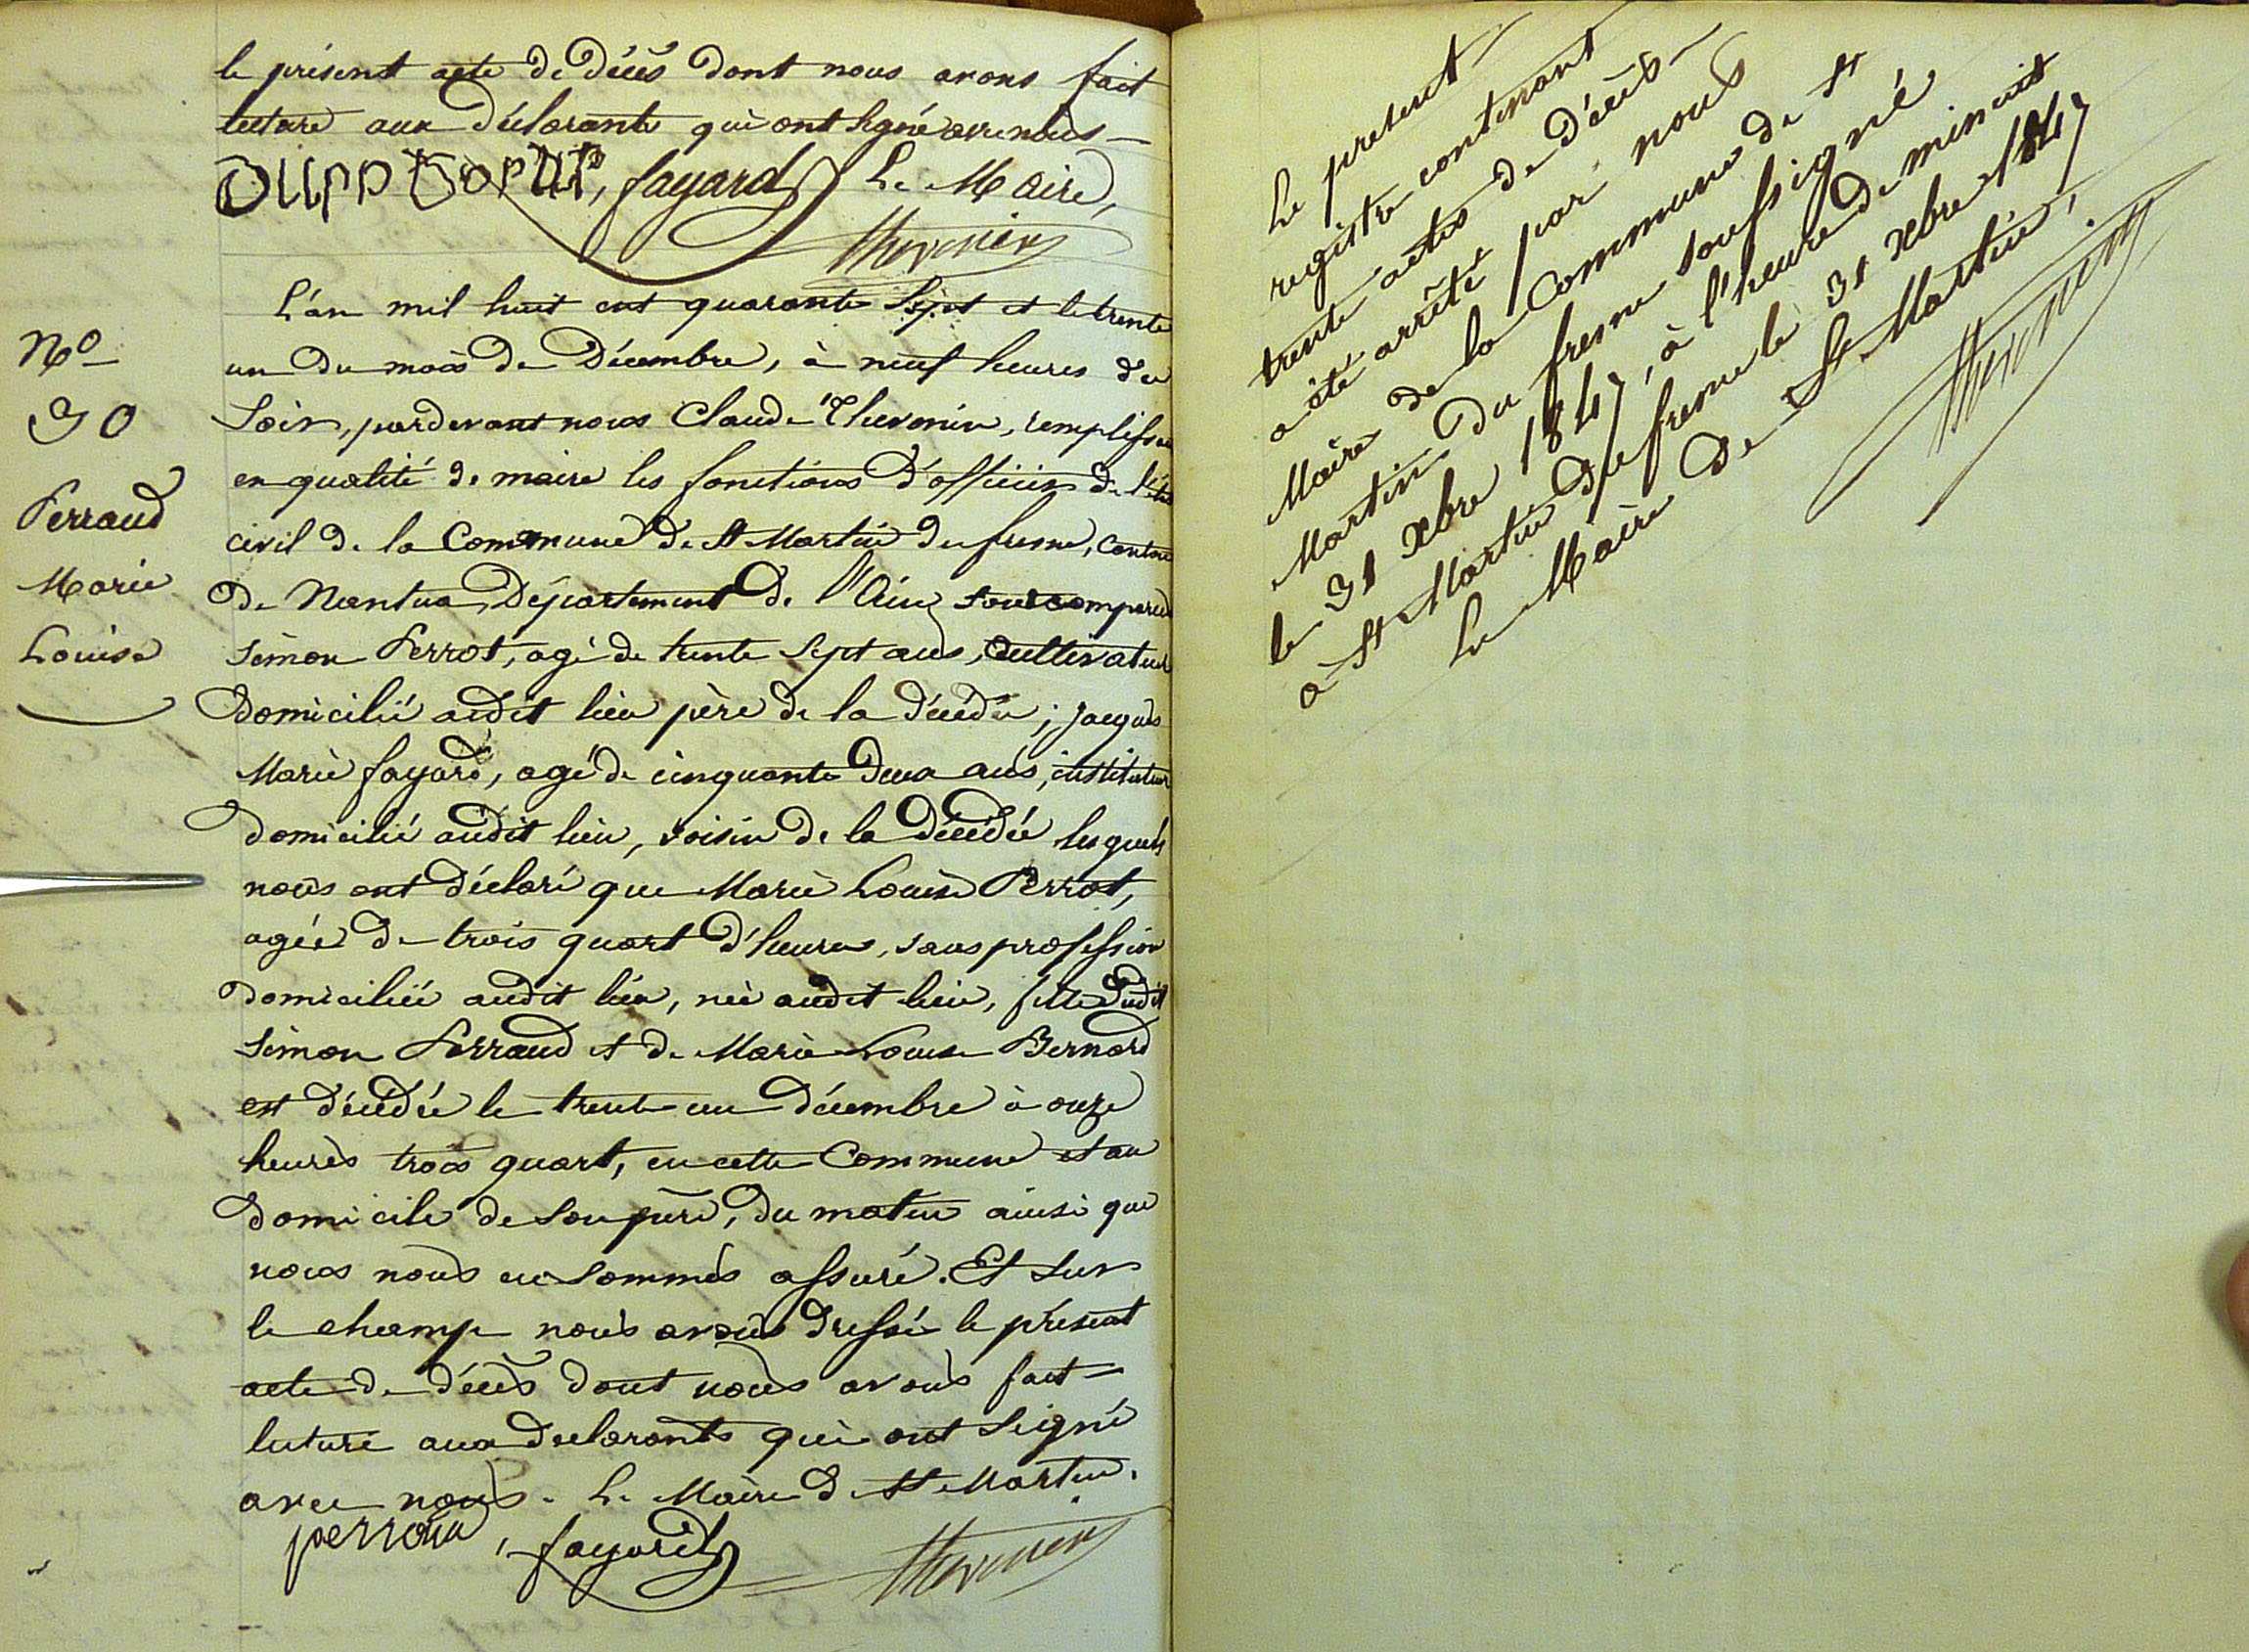 le présent acte de décès dont nous avons fait
lecture aux déclarants qui ont signé avec nous
fayard Le Maire,
Thevenin
N°
30
Perraud
Marie
Louise
L'an mil huit cent quarante sept et le trente
un du mois de Décembre, à neuf heures du
Soir, pardevant nous Claude Thevenin, remplissant
en qualité de maire les fonctions d'officier de l'état
civil de la Commune de St Martin du fresne, Canton
de Nantua, Département de l'Ain, sont comparus
Simon Perrot, agé de trente Sept ans, Cultivateur
domicilié audit lieu père de la décédée; jacques
Marie fayard, agé de cinquante deux ans, instituteur
domicilié audit lieu, voisin de la décédée lesquels
nous ont déclaré que Marie Louise Perrot,
agée de trois quart d'heures, sans profession
domiciliée audit lieu, née audit lieu, fille dudit
Simon Perraud et de Marie Louise Bernard
est décédée le trente un décembre à onze
heures trois quart, en cette Commune et au
domicile de son père, du matin ainsi que
nous nous en sommes assuré. Et sur
le champ nous avons dressé le présent
acte de décès dont nous avons fait
lecture aux declarants qui ont signé
avec nous. Le Maire d St Martin.
fayard Thevenin
Le present
registre contenant
trente actes de décès
a été arrêté par nous
Maire de la Commune de St
Martin du fresne soussigné
le 31 xbre 1847, à l'heure de minuit
a St Martin du fresne le 31 xbre 1847
Le Maire de St Martin,
Thevenin